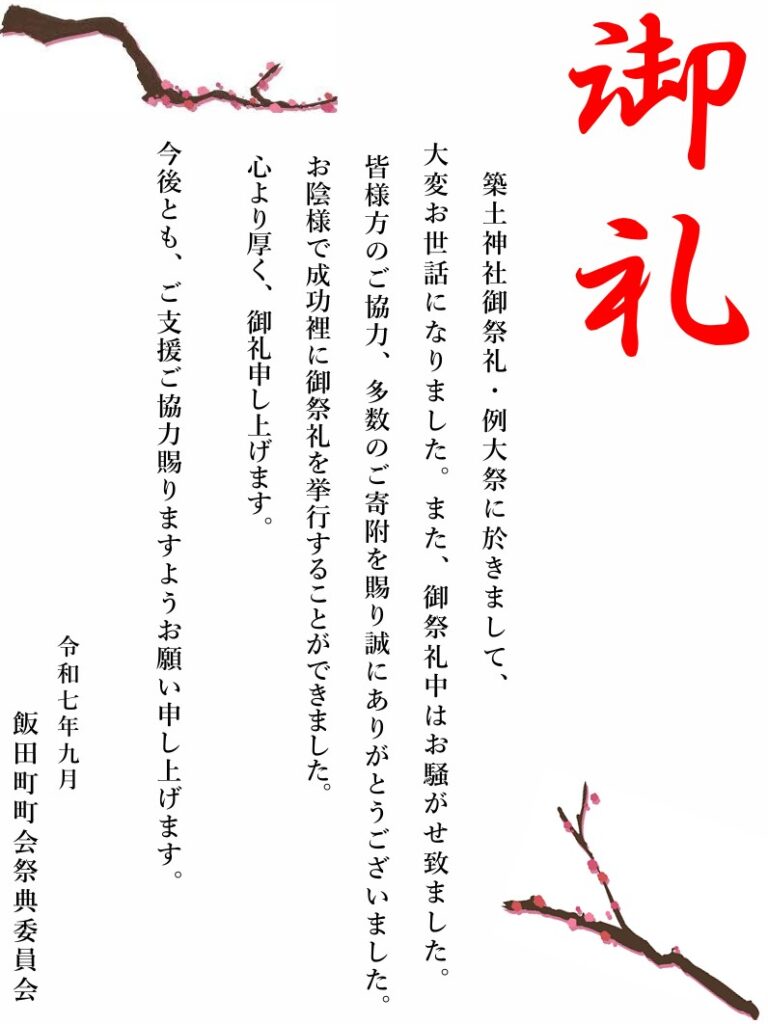 御礼
築土神社御祭礼・例大祭に於きまして、
大変お世話になりました。また、御祭礼中はお騒がせ致ました。
皆様方のご協力、多数のご寄附を賜り誠にありがとうございました。
お陰様で成功裡に御祭礼を挙行することができました。
心より厚く、御礼申し上げます。
今後とも、ご支援ご協力賜りますようお願い申し上げます。
令和七年九月
飯田町町会祭典委員会